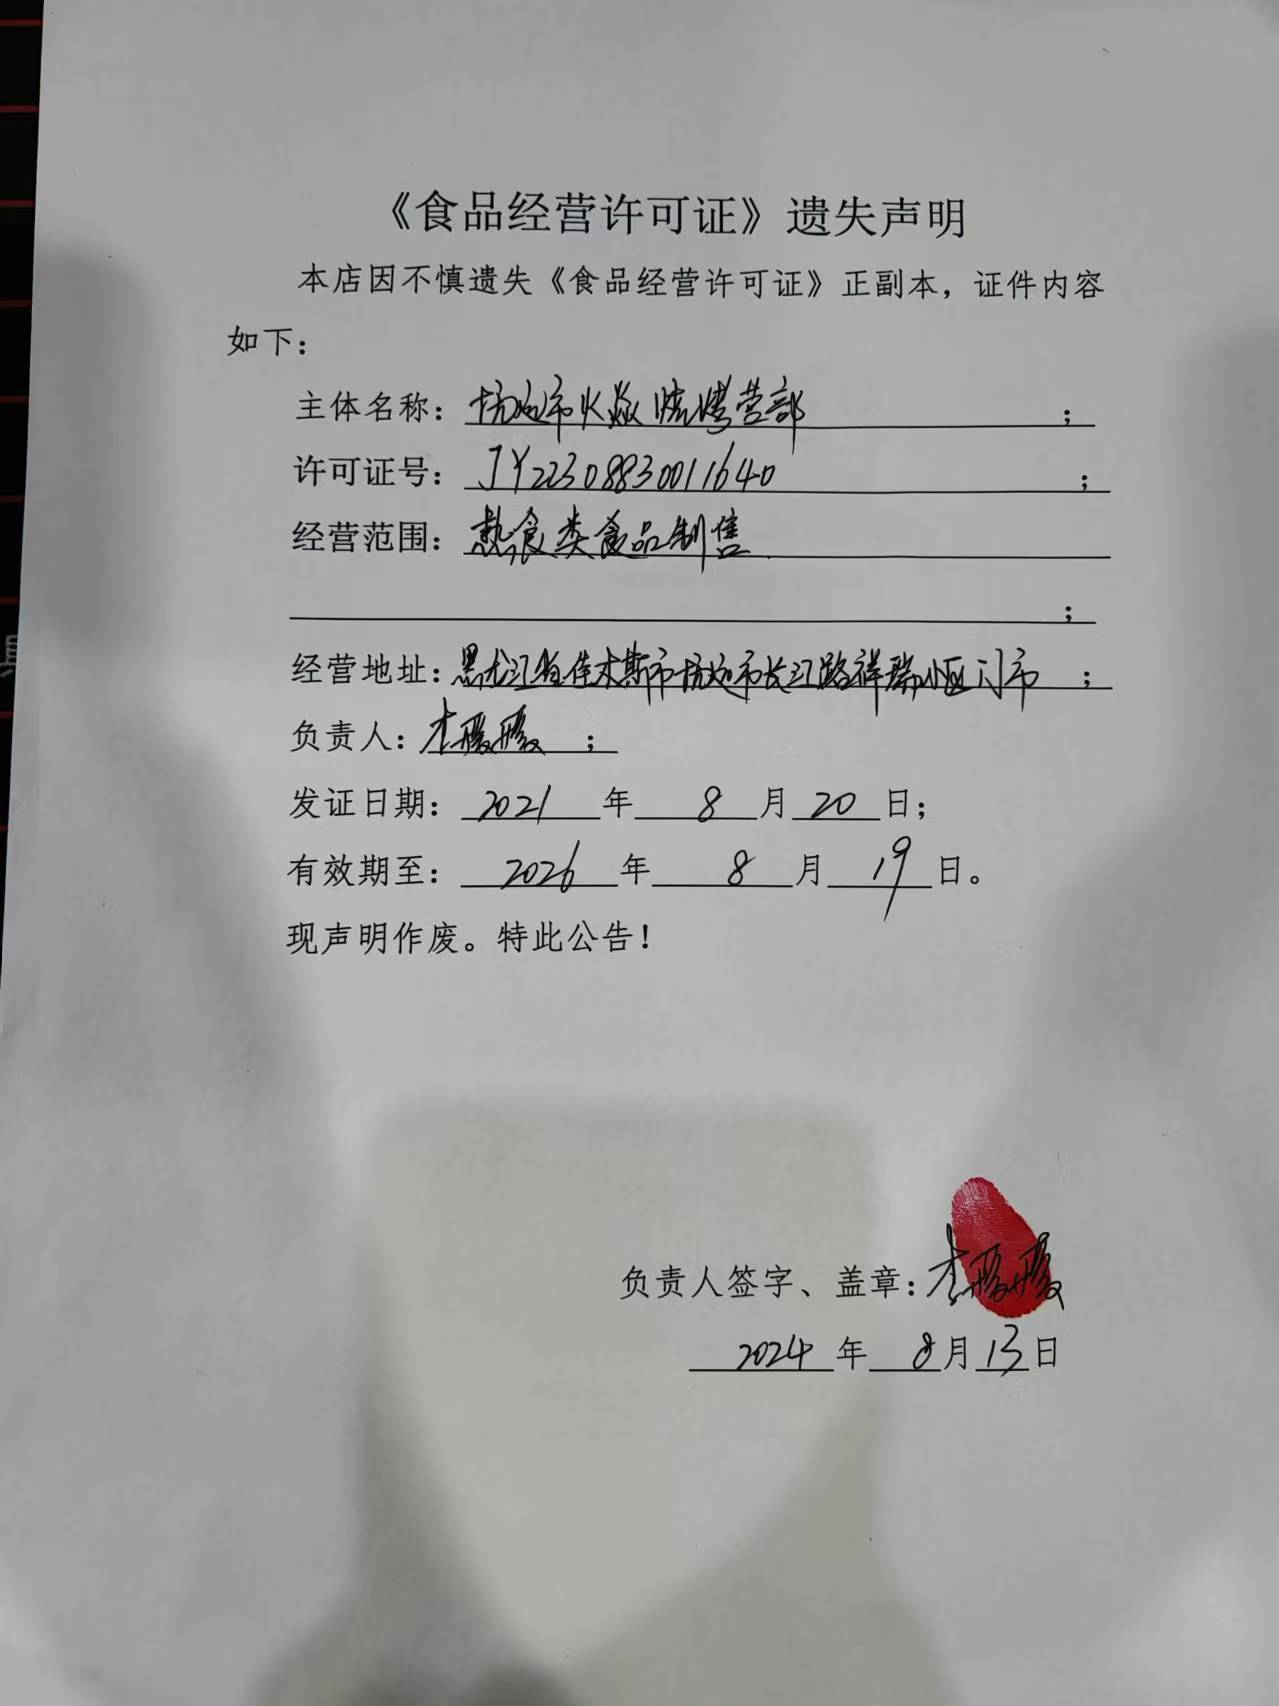 《食品经营许可证》遗失声明
本店因不慎遗失《食品经营许可证》正副本，证件内容
如下：
主体名称：抚远市火焱烧烤营部；
许可证号：JY22308830011640；
经营范围：热食类食品制售
；
经营地址：黑龙江省佳木斯市抚远市长江路祥瑞小区门市；
负责人：李媛媛；
发证日期：2021年8月20日；
有效期至：2026年8月19日。
现声明作废。特此公告！
负责人签字、盖章：李媛媛
2024年8月13日